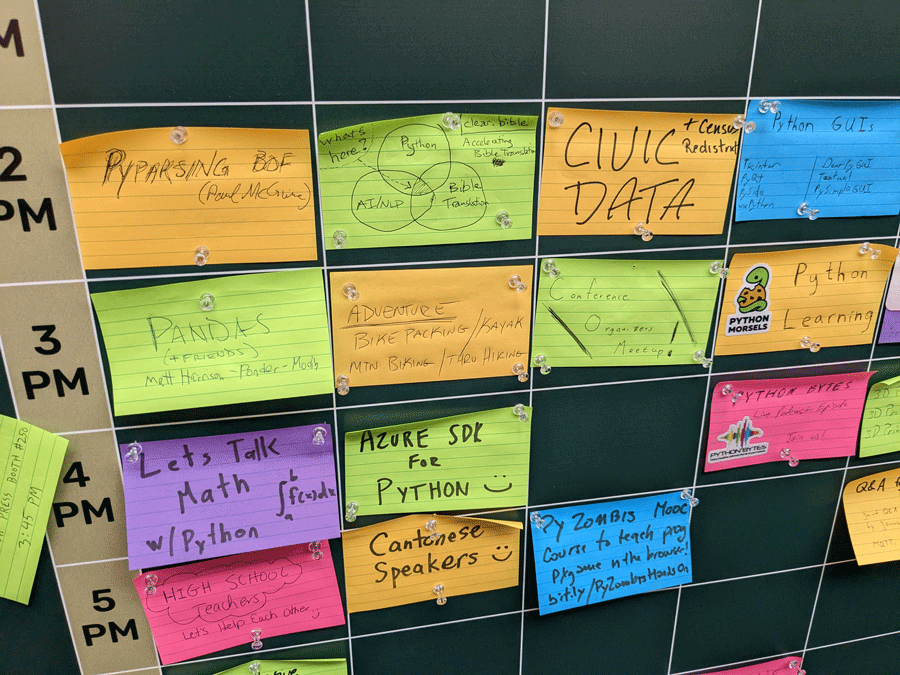 M
2
PM
PYPARSING BOF
(Paul McGuire)
what's
here?
Python
AI/NLP
Bible
Translation
clear.bible
Accelerating
Bible Translation
CIVIC
DATA
+ Census
Redistrict
Python GUIs
Tkinter
PyQt
PySide
wxPython
Dear PyGUI
Textual
PySimpleGUI
3
PM
PANDAS
(+FRIENDS)
Matt Harrison - Ponder - Modin
ADVENTURE
BIKEPACKING / KAYAK
MTN BIKING / THRU HIKING
Conference
Organizers
Meetup!
PYTHON
MORSELS
Python
Learning
PRESS BOOTH #250
3:45 PM
4
PM
Lets Talk
Math
w/Python
∫ₐᵇ f(x)dx
AZURE SDK
FOR
PYTHON
PYTHON BYTES
Live Podcast Episode
Join us!
PYTHON BYTES
3D
3D
3D
Q&A
5
PM
HIGH SCHOOL
Teachers
Let's Help Each Other
Cantonese
Speakers
PyZombis MOOC
Course to teach prog
P/game in the browser!
bit.ly/PyZombisHandsOn